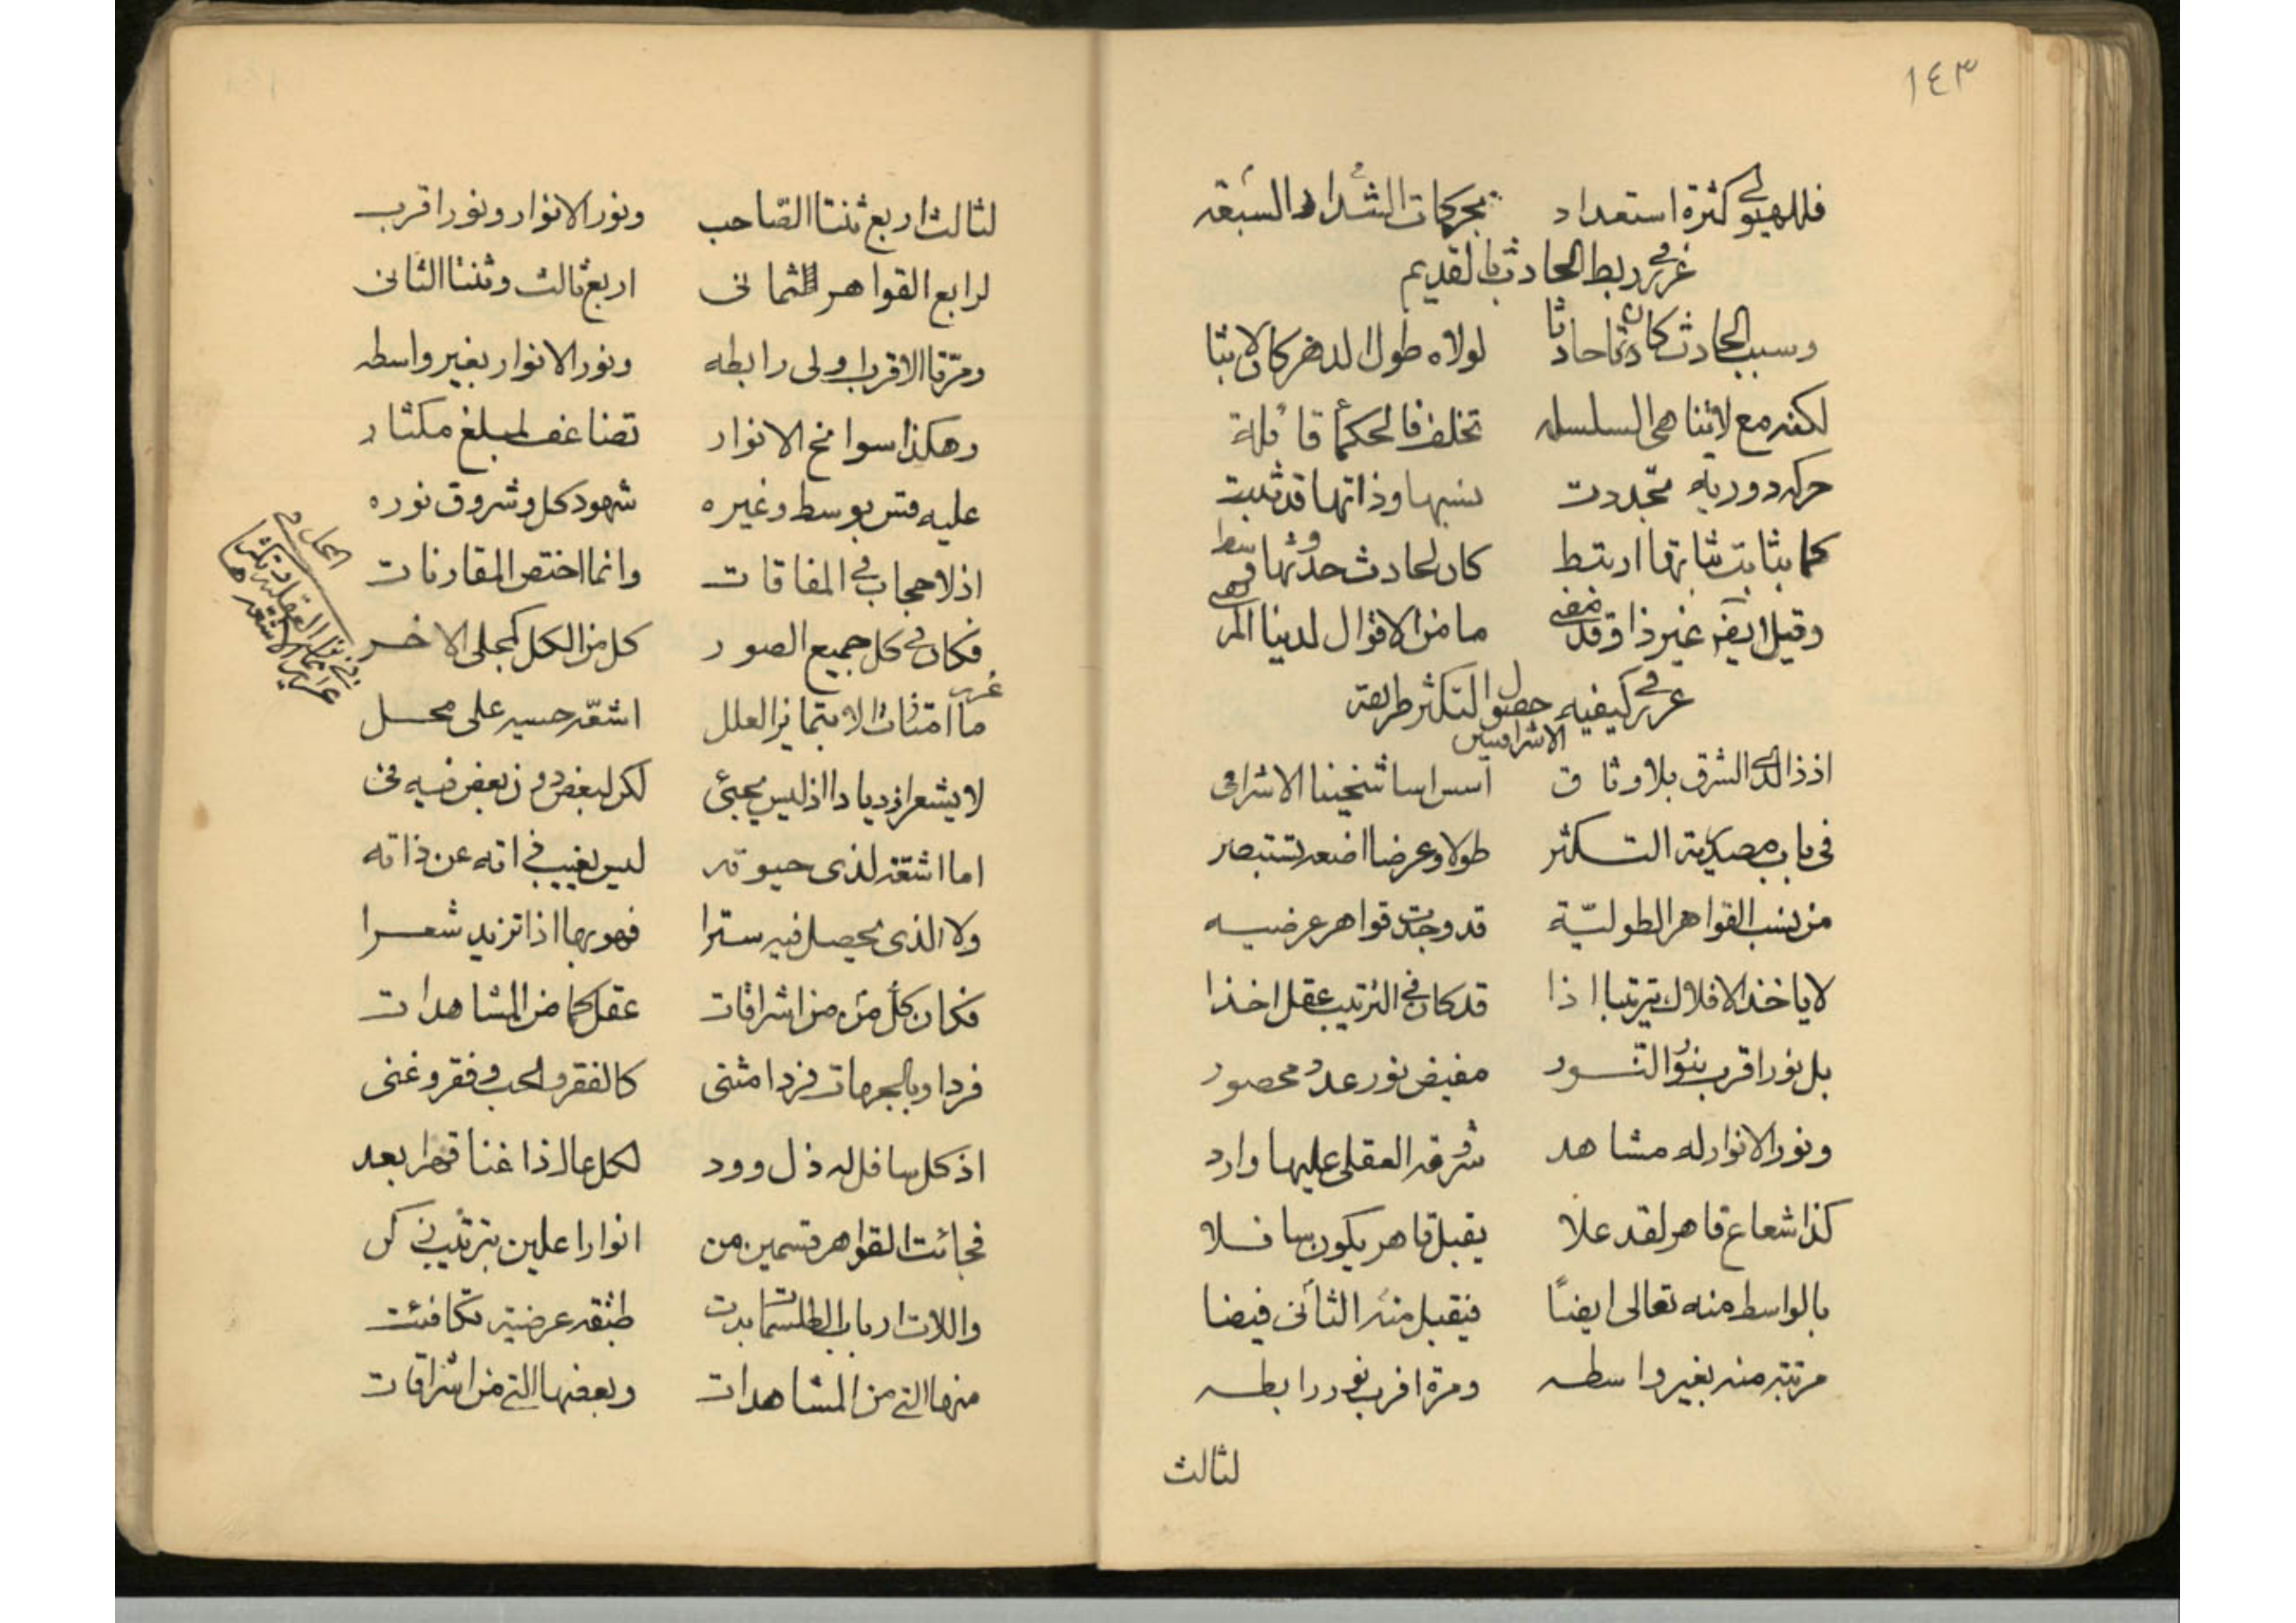 ١٤٣
فللهيولى كثرة استعداد بحركات السبعة الشداد
غرر فى ربط الحادث بالقديم
وسبب الحادث كان حادثا لولاه طول الدهر كان لابثا
لكنه مع لاتناهى السلسله تخلف فالحكمأ قائلة
حركه دوريه تجددت نسبها وذاتها قد ثبتت
كما بثابت ثباتها ارتبط كان لحادث حدوثها وسط
وقيل ايضا غير ذا وقد مضى ما من الاقوال لدينا المرتضى
غرر فى كيفيه حصول التكثر طريقة
الاشراقيين
اذ ذا لدى الشرق بلا وثاق اسس اساسا شيخنا الاشراقى
فى باب مصدرية التكثر طولا وعرضا اضعه تستبصر
من نسب القواهر الطوليّة قد وجدت قواهر عرضيه
لا ياخذ الافلاك ترتبا اذا قد كان فى الترتيب عقل اخذا
بل نور اقرب بنور النور مفيض نور عد ومحصور
ونور الانوار له مشاهد شروقه العقلى عليها وارد
كذا شعاع قاهر لقد علا يقبل قاهر يكون سافلا
بالواسط منه تعالى ايضاً فيقبل منه الثانى فيضا
مرتبة منه بغير واسطه ومرة اقرب نور رابطه
لثالث
لثالث اربع ثنتا الصّاحب ونور الانوار ونور اقرب
لرابع القواهر الثمانى اربع ثالث وثنتا الثانى
ومرّتا الاقرب اولى رابطه ونور الانوار بغير واسطه
وهكذا سوانح الانوار تضاعف لمبلغ مكثار
عليه قس بوسط وغيره شهود كل وشروق نوره
اذ لا حجاب فى المفارقات وانما اختص المقارنات
فكان فى كل جميع الصور كل من الكل كمجلى الاخر
ما امتازت الا بتمايز العلل اشعّه حسيه على محل
لا يشعر ازديادا اذ ليس بحيّ لكن لبعض دون بعض فيه فى
اما اشعّه لذى حيوته ليس يغيب ذاته عن ذاته
ولا الذى يحصل فيه سترا فهو بها اذا تزيد شعرا
فكان كل من من اشراقات عقل كما من المشاهدات
فردا وبالجهات فردا مثنى كالفقر والحب وفقر وغنى
اذ كل سافل له ذل وود لكل عال ذا غنا قهرا يعد
فجائت القواهر قسمين من انوارا علين بترتيب زكن
واللات ارباب الطلسمات بدت طبقة عرضية تكافئت
منها التى من المشاهدات وبعضها التى من اشراقات